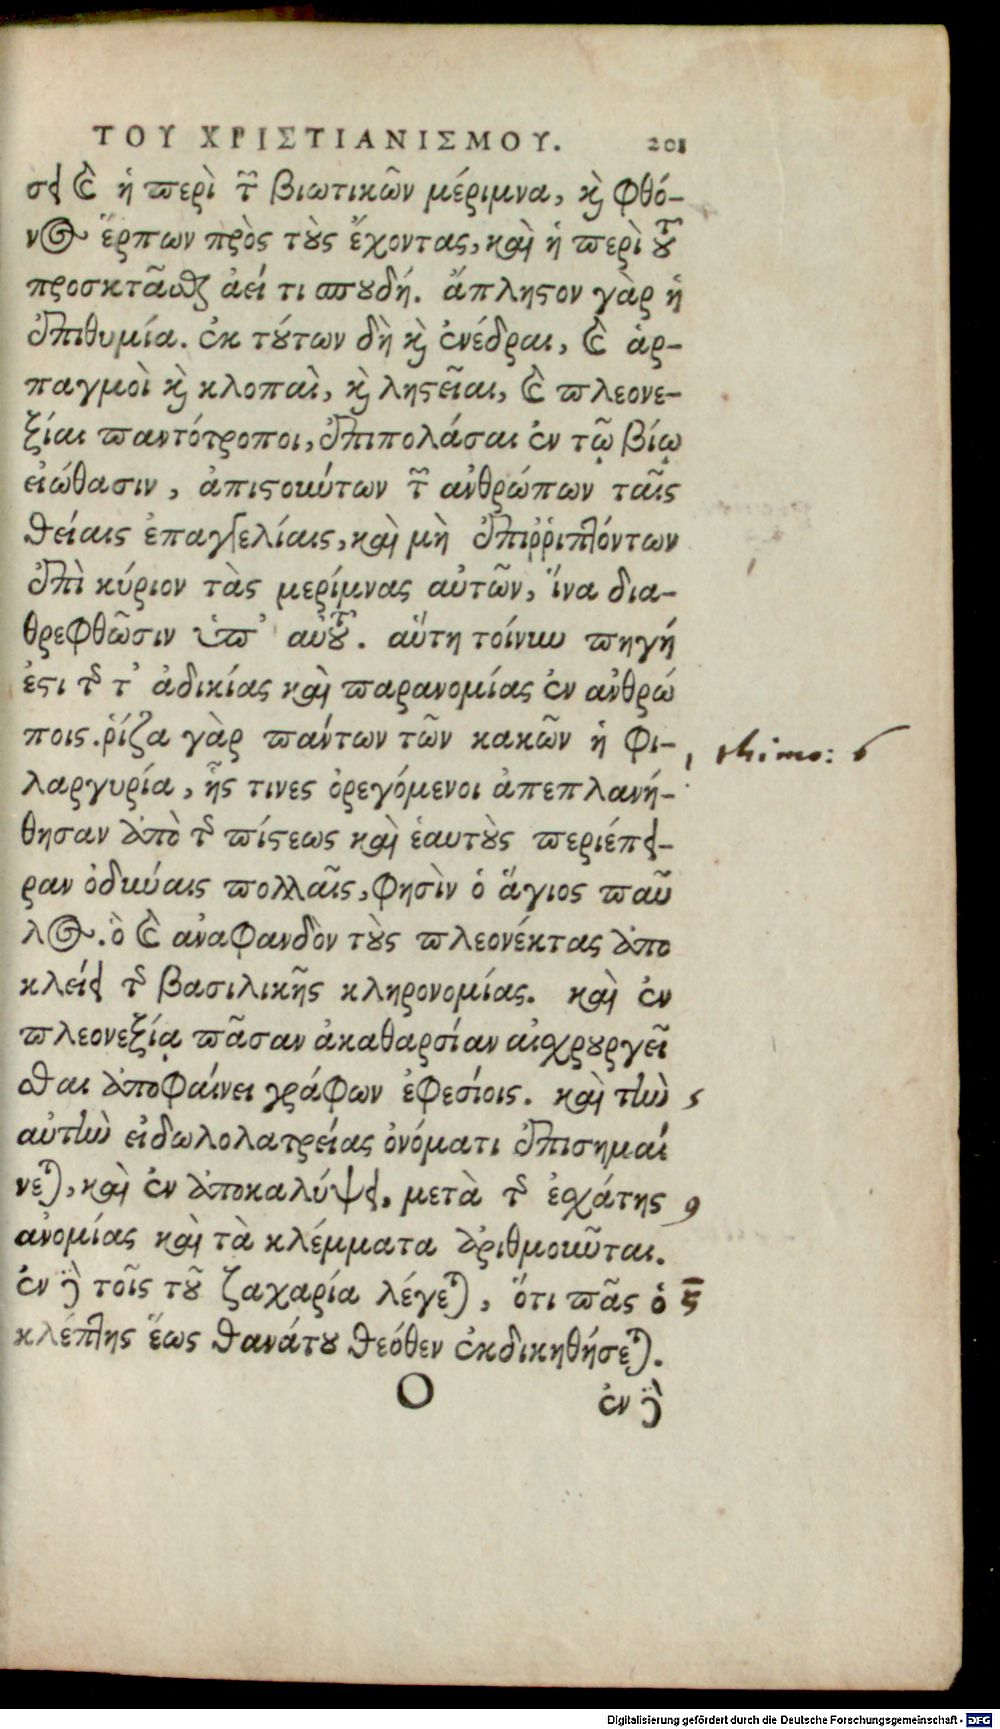 ΤΟΥ ΧΡΙΣΤΙΑΝΙΣΜΟΥ. 201
σει καὶ ἡ περὶ τῶν βιωτικῶν μέριμνα, καὶ φθό-
νος ἕρπων πρὸς τοὺς ἔχοντας, καὶ ἡ περὶ τοῦ
προσκτᾶσθαι ἀεί τι σπουδή. ἄπληστον γὰρ ἡ
ἐπιθυμία. ἐκ τούτων δὴ καὶ ἐνέδραι, καὶ ἁρ-
παγμοὶ καὶ κλοπαὶ, καὶ λῃστεῖαι, καὶ πλεονε-
ξίαι παντότροποι, ἐπιπολάσαι ἐν τῷ βίῳ
εἰώθασιν, ἀπιστούντων τῶν ἀνθρώπων ταῖς
θείαις ἐπαγγελίαις, καὶ μὴ ἐπιῤῥιπτόντων
ἐπὶ κύριον τὰς μερίμνας αὐτῶν, ἵνα δια-
θρεφθῶσιν ὑπ' αὐτοῦ. αὕτη τοίνυν πηγή
ἐστι τῆς τ' ἀδικίας καὶ παρανομίας ἐν ἀνθρώ
ποις. ῥίζα γὰρ πάντων τῶν κακῶν ἡ φι-
1 thimo: 6
λαργυρία, ἧς τινες ὀρεγόμενοι ἀπεπλανή-
θησαν ἀπὸ τῆς πίστεως καὶ ἑαυτοὺς περιέπει-
ραν ὀδύναις πολλαῖς, φησὶν ὁ ἅγιος παῦ
λος. ὃ καὶ ἀναφανδὸν τοὺς πλεονέκτας ἀπο
κλείει τῆς βασιλικῆς κληρονομίας. καὶ ἐν
πλεονεξίᾳ πᾶσαν ἀκαθαρσίαν αἰσχρουργεῖ
σθαι ἀποφαίνει γράφων ἐφεσίοις. καὶ τὴν 5
αὐτὴν εἰδωλολατρείας ὀνόματι ἐπισημαί
νεται, καὶ ἐν ἀποκαλύψει, μετὰ τῆς ἐσχάτης 9
ἀνομίας καὶ τὰ κλέμματα ἀριθμοῦνται.
ἐν δὲ τοῖς τοῦ ζαχαρία λέγεται, ὅτι πᾶς ὁ 5
κλέπτης ἕως θανάτου θεόθεν ἐκδικηθήσεται.
O ἐν δὲ
Digitalisierung gefördert durch die Deutsche Forschungsgemeinschaft - DFG